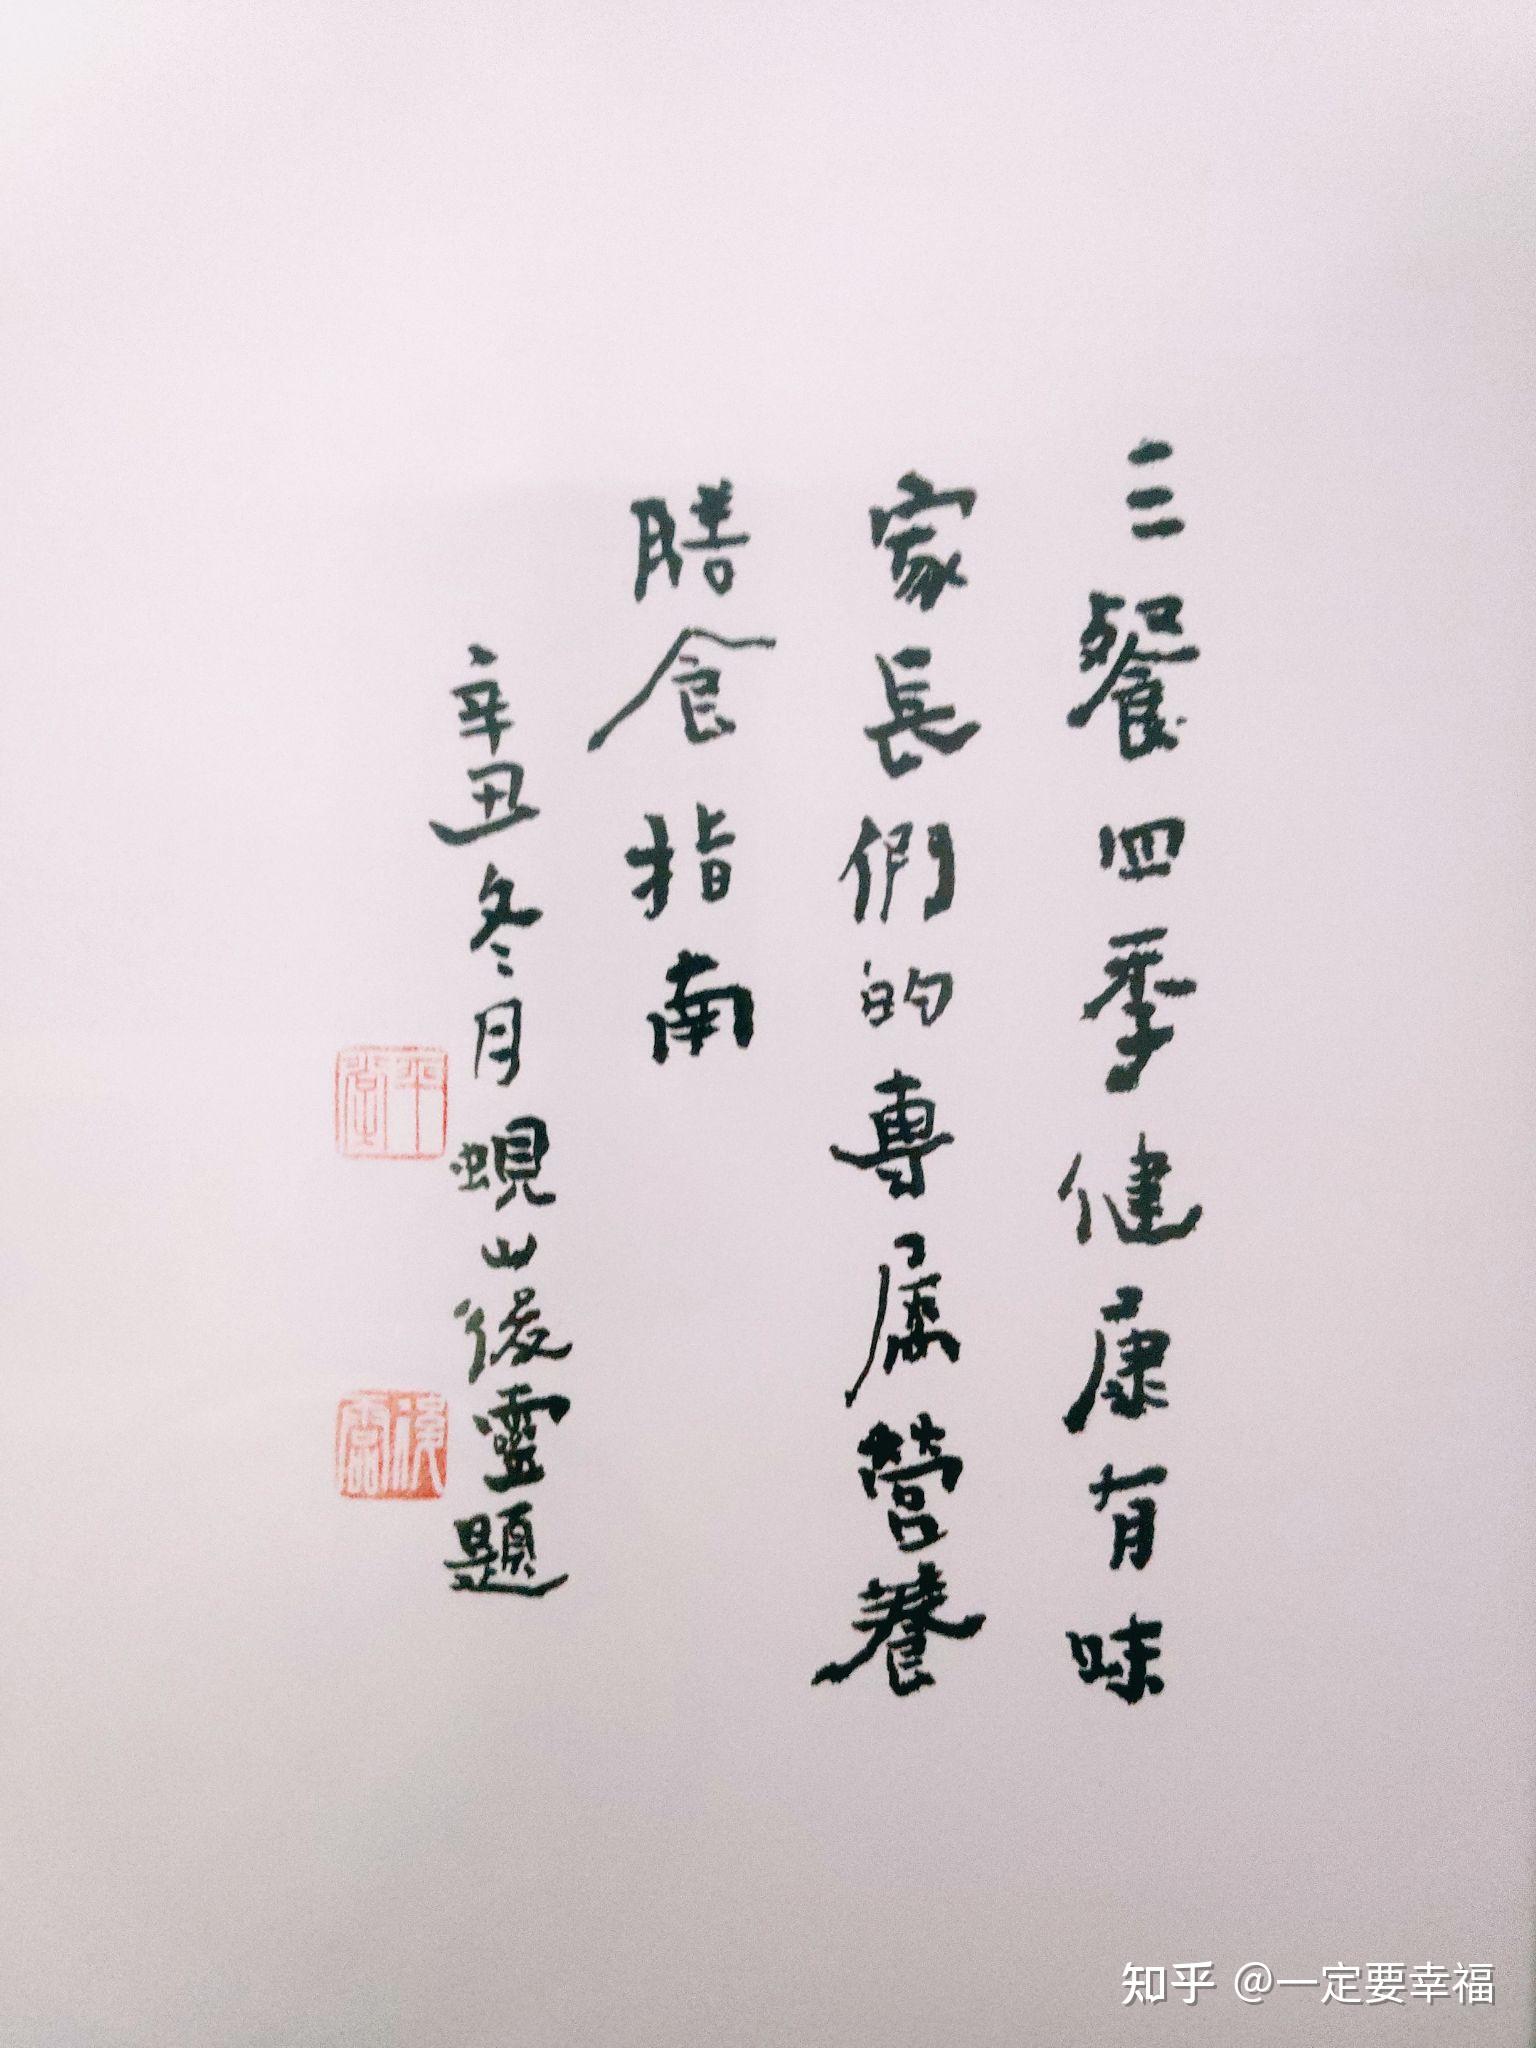 三餐四季健康有味
家長們的專属營養
膳食指南
辛丑冬月蜆山後靈題
知乎 @一定要幸福